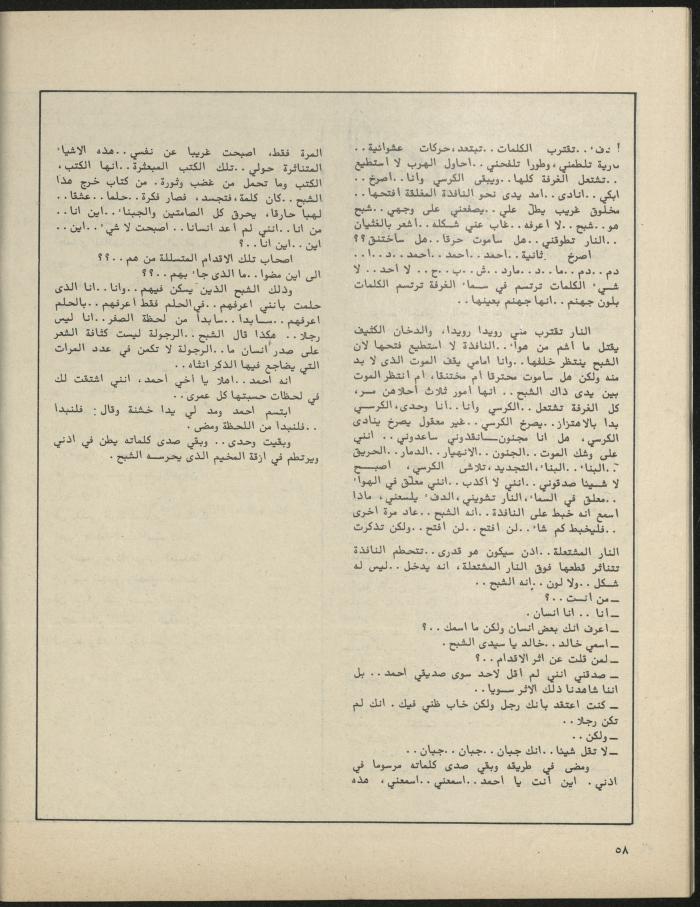 دفء..تقترب الكلمات..تبتعد، حركات عشوائية..
تلطمني، وطورا تلفحني..احاول الهرب لا أستطيع
..تشتعل الغرفة كلها..ويبقى الكرسي وأنا..أصرخ..
ابكي..انادى..امد يدى نحو النافذة المغلقة افتحها..
مخلوق غريب يطل علي..يصفعني على وجهي..شبح
هو..شبح..لا أعرفه..غاب عني شكله..أشعر بالغثيان
..النار تطوقني..هل سأموت حرقا..هل سأختنق؟؟
أصرخ ثانية..احمد..احمد..احمد..د..ا..
دم..دم..ما..د..مارد..ش..ب..ح..لا أحد..لا
شيء الكلمات ترتسم في سماء الغرفة ترتسم الكلمات
بلون جهنم..انها جهنم بعينها..
النار تقترب مني رويدا رويدا، والدخان الكثيف
يقتل ما أشم من هواء..النافذة لا استطيع فتحها لان
الشبح ينتظر خلفها..وأنا امامي يقف الموت الذى لا بد
منه ولكن هل سأموت محترقا أم مختنقا، أم انتظر الموت
بين يدى ذاك الشبح..انها أمور ثلاث أحلاهن مر،
كل الغرفة تشتعل..الكرسي وأنا..أنا وحدى، الكرسي
بدا بالاهتزاز..يصرخ الكرسي..غير معقول يصرخ ينادى
الكرسي، هل انا مجنون..انقذوني ساعدوني..انني
على وشك الموت..الجنون..الانهيار..الدمار..الحريق
..البناء..البناء، التجديد، تلاشى الكرسي، اصبح
لا شيئا صدقوني..انني لا اكذب..انني معلق في الهواء
..معلق في السماء، النار تشويني، الدفء يلسعني، ماذا
اسمع انه خبط على النافذة..انه الشبح..عاد مرة اخرى
..فليخبط كم شاء..لن افتح..لن افتح..ولكن تذكرت
النار المشتعلة..اذن سيكون هو قدرى..تتحطم النافذة
تتناثر قطعها فوق النار المشتعلة، انه يدخل..ليس له
شكل..ولا لون..إنه الشبح..
ـ من أنت..؟
ـ أنا .. انا انسان.
ـ اعرف انك بعض انسان ولكن ما اسمك..؟
ـ اسمي خالد..خالد يا سيدى الشبح.
ـ لمن قلت عن اثر الاقدام..؟
ـ صدقني انني لم أقل لاحد سوى صديقي احمد.. بل
اننا شاهدنا ذلك الاثر سويا..
ـ كنت اعتقد بأنك رجل ولكن خاب ظني فيك. انك لم
تكن رجلا..
ـ ولكن..
ـ لا تقل شيئا..انك جبان..جبان..جبان..
ومضى في طريقه وبقي صدى كلماته مرسوما في
اذني. أين أنت يا أحمد..اسمعني..اسمعني، هذه
المرة فقط، اصبحت غريبا عن نفسي..هذه الاشياء
المتناثرة حولي..تلك الكتب المبعثرة..انها الكتب،
الكتب وما تحمل من غضب وثورة. من كتاب خرج هذا
الشبح..كان كلمة، فتجسد، فصار فكرة..حلما..عشقا..
لهبا حارقا، يحرق كل الصامتين والجبناء..اين انا..
من انا..انني لم أعد انسانا..اصبحت لا شيء..اين..
اين..اين انا..؟
اصحاب تلك الاقدام المتسللة من هم..؟؟
الى اين مضوا..ما الذى جاء بهم..؟؟
وذلك الشبح الذين يسكن فيهم..وأنا..انا الذى
حلمت بأنني اعرفهم..في الحلم فقط أعرفهم..بالحلم
اعرفهم..سابدأ..سابدأ من لحظة الصفر..انا ليس
رجلا.. هكذا قال الشبح..الرجولة ليست كثافة الشعر
على صدر انسان ما..الرجولة لا تكمن في عدد المرات
التي يضاجع فيها الذكر انثاه..
انه أحمد..اهلا يا أخي أحمد، انني اشتقت لك
في لحظات حسبتها كل عمرى..
ابتسم احمد ومد لي يدا خشنة وقال: فلنبدأ
..فلنبدأ من اللحظة ومضى.
وبقيت وحدى..وبقي صدى كلماته يطن في اذني
ويرتطم في ازقة المخيم الذى يحرسه الشبح.
٥٨